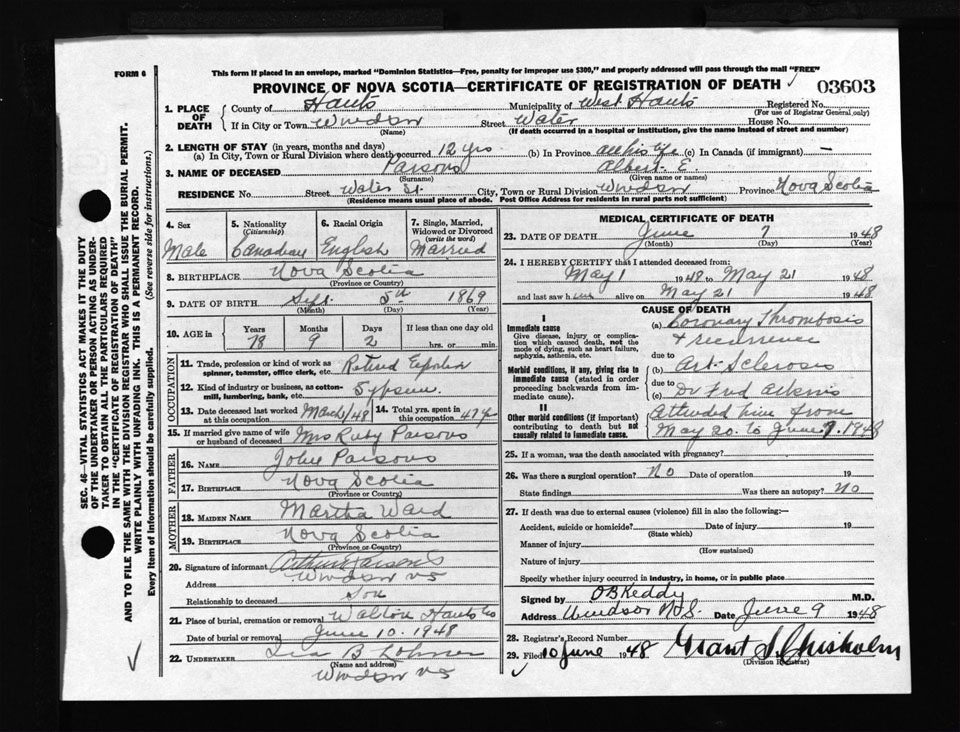 This form if placed in an envelope, marked "Dominion Statistics—Free, penalty for improper use $300," and properly addressed will pass through the mail "FREE"
FORM 6
PROVINCE OF NOVA SCOTIA—CERTIFICATE OF REGISTRATION OF DEATH 03603
1. PLACE OF DEATH County of Hants Municipality of West Hants Registered No.
(For use of Registrar General only)
If in City or Town Windsor Street Water House No.
(Name) (If death occurred in a hospital or institution, give the name instead of street and number)
2. LENGTH OF STAY (in years, months and days)
(a) In City, Town or Rural Division where death occurred 12 yrs (b) In Province all his life (c) In Canada (if immigrant) —
3. NAME OF DECEASED Parsons Albert E.
(Surname) (Given name or names)
RESIDENCE No. Street Water St. City, Town or Rural Division Windsor Province Nova Scotia
(Residence means usual place of abode. Post Office Address for residents in rural parts not sufficient)
4. Sex 5. Nationality (Citizenship) 6. Racial Origin 7. Single, Married, Widowed or Divorced (write the word)
Male Canadian English Married
8. BIRTHPLACE Nova Scotia
(Province or Country)
9. DATE OF BIRTH Sept. 5th 1869
(Month) (Day) (Year)
10. AGE in Years Months Days If less than one day old
78 9 2 hrs. or min.
OCCUPATION
11. Trade, profession or kind of work as spinner, teamster, office clerk, etc. Retired
12. Kind of industry or business, as cotton-mill, lumbering, bank, etc. Gypsum
13. Date deceased last worked at this occupation March/48 14. Total yrs. spent in this occupation 47 y
15. If married give name of wife or husband of deceased Mrs Ruby Parsons
FATHER
16. NAME John Parsons
17. BIRTHPLACE Nova Scotia
(Province or Country)
MOTHER
18. MAIDEN NAME Martha Ward
19. BIRTHPLACE Nova Scotia
(Province or Country)
20. Signature of informant Arthur Parsons
Address Windsor NS
Relationship to deceased Son
21. Place of burial, cremation or removal Walton Hants Co
Date of burial or removal June 10. 1948
22. UNDERTAKER Ira B
(Name and address)
Windsor NS
MEDICAL CERTIFICATE OF DEATH
23. DATE OF DEATH June 7 1948
(Month) (Day) (Year)
24. I HEREBY CERTIFY that I attended deceased from:
May 1 1948 to May 21 1948
and last saw him alive on May 21 1948
CAUSE OF DEATH
I
Immediate cause
Give disease, injury or complication which caused death, not the mode of dying, such as heart failure, asphyxia, asthenia, etc.
(a) Coronary Thrombosis
& recurrence
due to
Morbid conditions, if any, giving rise to immediate cause (stated in order proceeding backwards from immediate cause).
(b) Art. Sclerosis
due to
(c) Dr Fred
II
Other morbid conditions (if important) contributing to death but not causally related to immediate cause.
Attended him from
May 20 to June 7. 1948
25. If a woman, was the death associated with pregnancy?
26. Was there a surgical operation? No Date of operation 19
State findings Was there an autopsy? No
27. If death was due to external causes (violence) fill in also the following:—
Accident, suicide or homicide? Date of injury 19
(State which)
Manner of injury
(How sustained)
Nature of injury
Specify whether injury occurred in industry, in home, or in public place
Signed by O B Keddy M.D.
Address Windsor N.S. Date June 9 1948
28. Registrar's Record Number
29. Filed 10 June 1948 Grant S. Chisholm
(Division Registrar)
SEC. 46—VITAL STATISTICS ACT MAKES IT THE DUTY
OF THE UNDERTAKER OR PERSON ACTING AS UNDER-
TAKER TO OBTAIN ALL THE PARTICULARS REQUIRED
IN THE "CERTIFICATE OF REGISTRATION OF DEATH"
AND TO FILE THE SAME WITH THE DIVISION REGISTRAR WHO SHALL ISSUE THE BURIAL PERMIT.
WRITE PLAINLY WITH UNFADING INK. THIS IS A PERMANENT RECORD.
Every item of information should be carefully supplied. (See reverse side for instructions.)